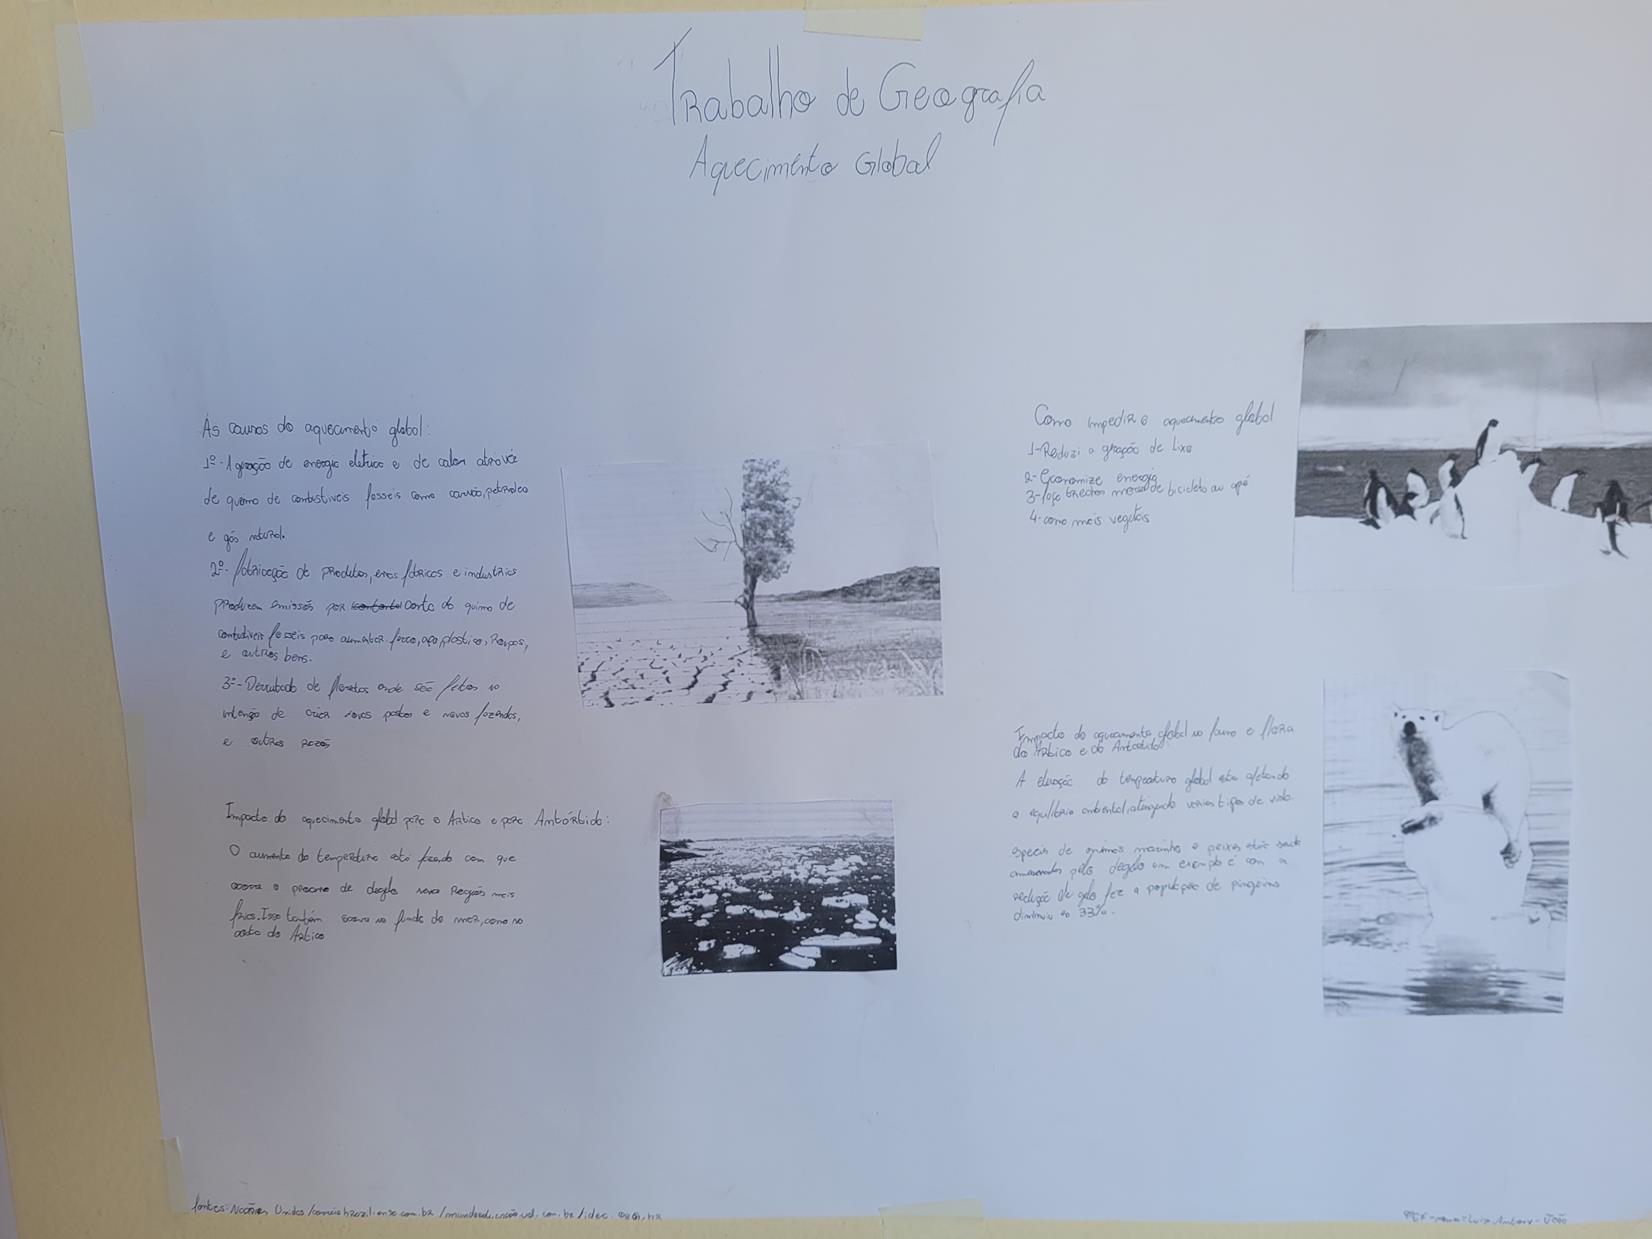 Trabalho de Geografia
Aquecimento Global
As causas do aquecimento global:
1º- A geração de energia eletrica e de calor
de queima de combustiveis fosseis como carvão, petroleo
e gás natural.
2º- fabricação de produtos, fabricas e industrias
produzem por conta da queima de
fosseis para ferro, aço, plastico, Roupas,
e outros bens.
3º- Derrubada de florestas onde são feitas na
intenção de criar novos pastos e novas fazendas,
e outras
Impacto do aquecimento global para o Artico e para
O aumento da temperatura está fazendo com que
ocorra o de degelo Regiões mais
frias. Isso também ocorre no fundo do mar, como na
costa do Artico
Como impedir o aquecimento global
1- Reduzi a geração de lixo
2- Economize energia
3- faça de bicicleta ou apé
4- coma mais vegetais
Impacto do aquecimento global na fauna e flora
do Artico e do
A elevação da temperatura global esta afetando
o equilibrio ambiental, varios tipos de vida.
de animais marinhos e peixes
pelo degelo um exemplo é com a
redução de gelo fez a população de pinguins
diminuiu 33%.
fontes: Nações Unidas /